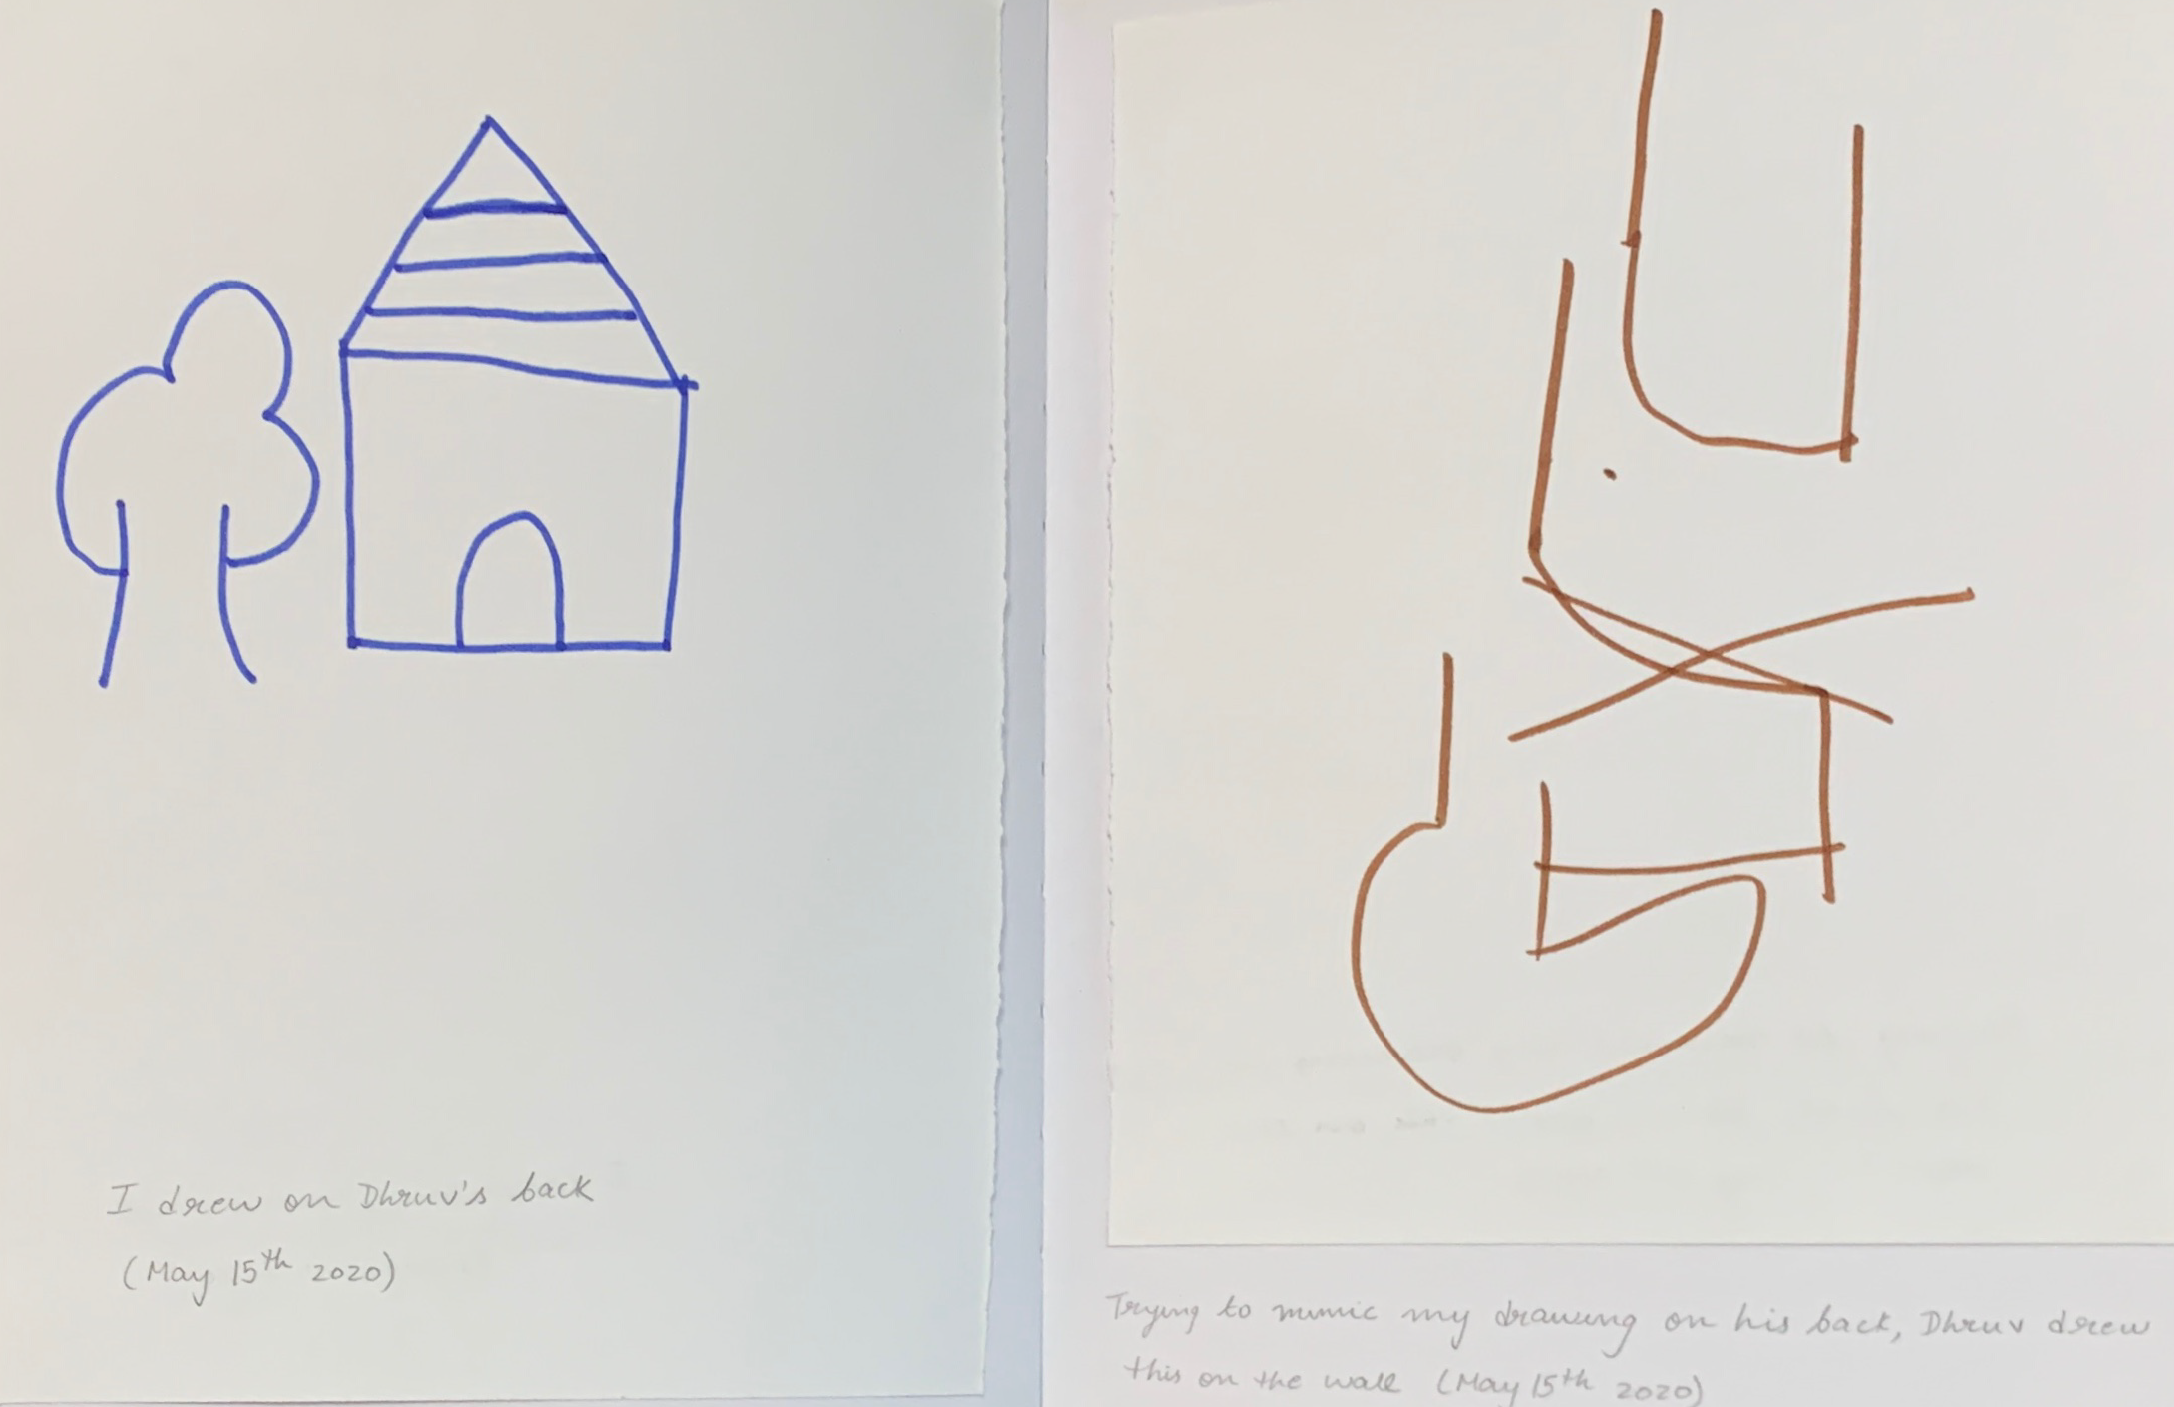 I drew on Dhruv's back
(May 15th 2020)
Trying to mimic my drawing on his back, Dhruv drew
this on the wall (May 15th 2020)